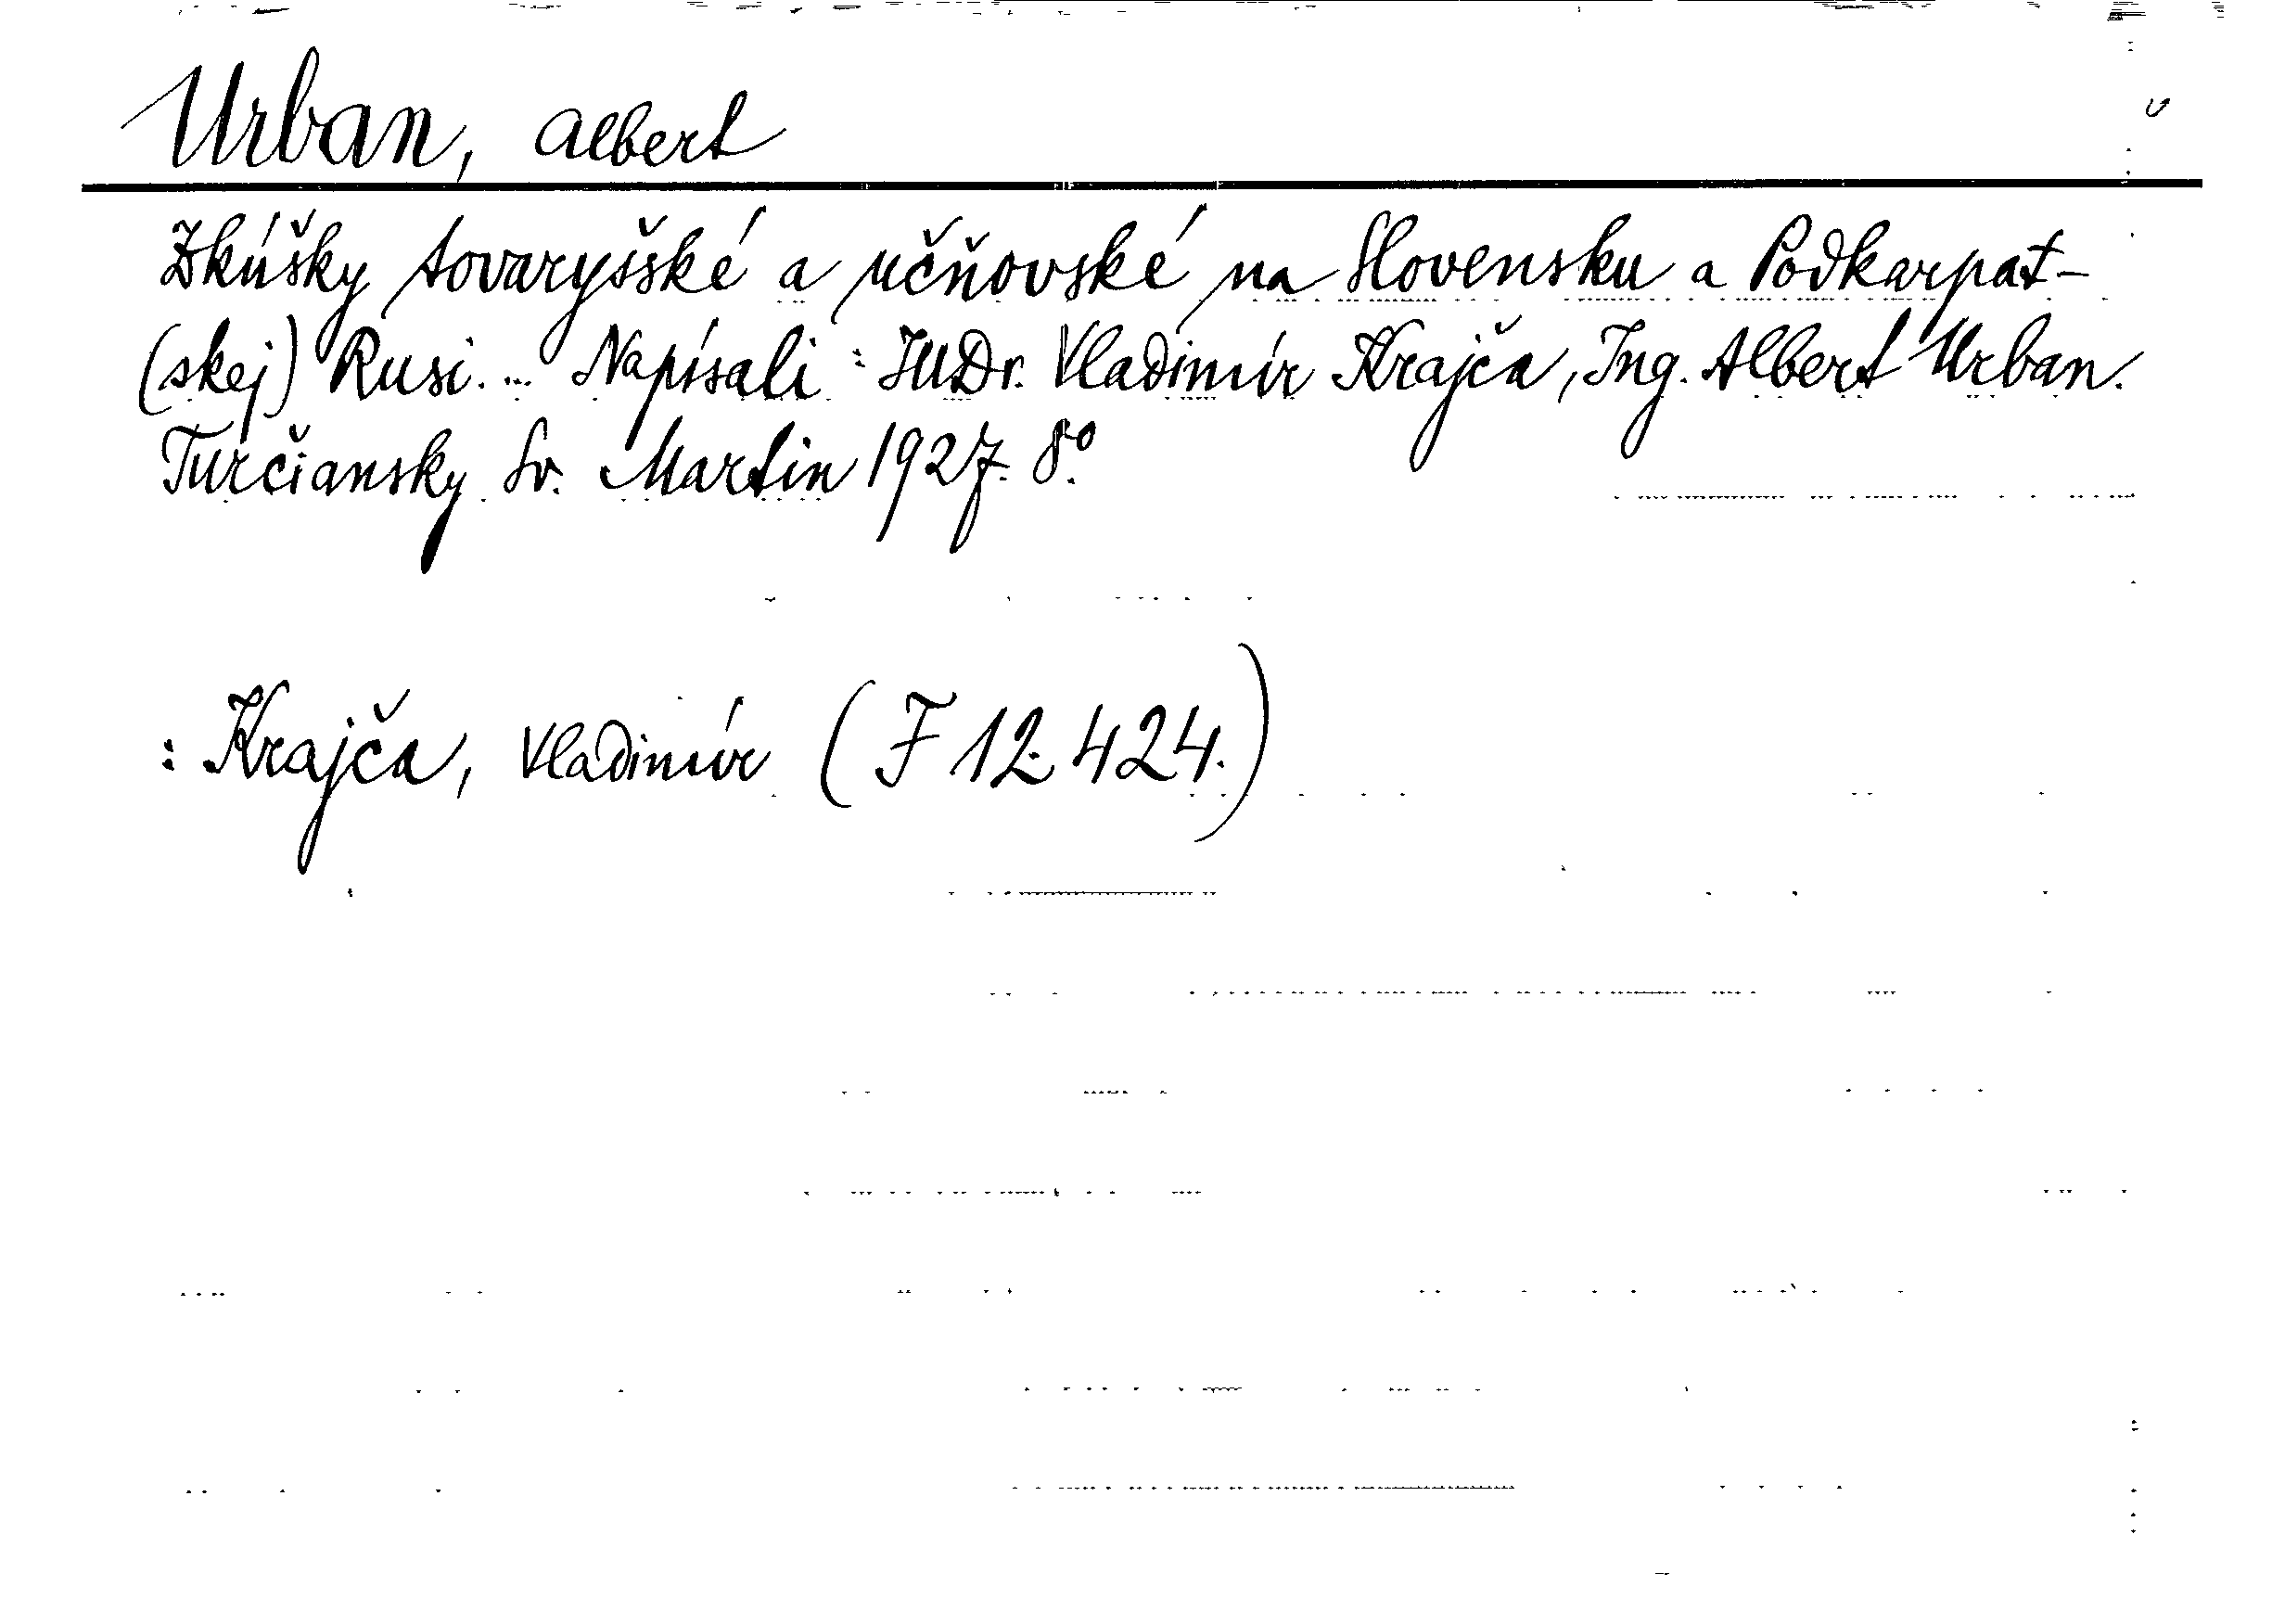 Urban, Albert
Zkúšky tovaryšské a učňovské na Slovensku a Podkarpat-
(skej) Rusi... Napísali: JUDr. Vladimír Krajča, Ing. Albert Urban.
Turčiansky Sv. Martin 1927. 8º.
: Krajča, Vladimír (F 12.424.)